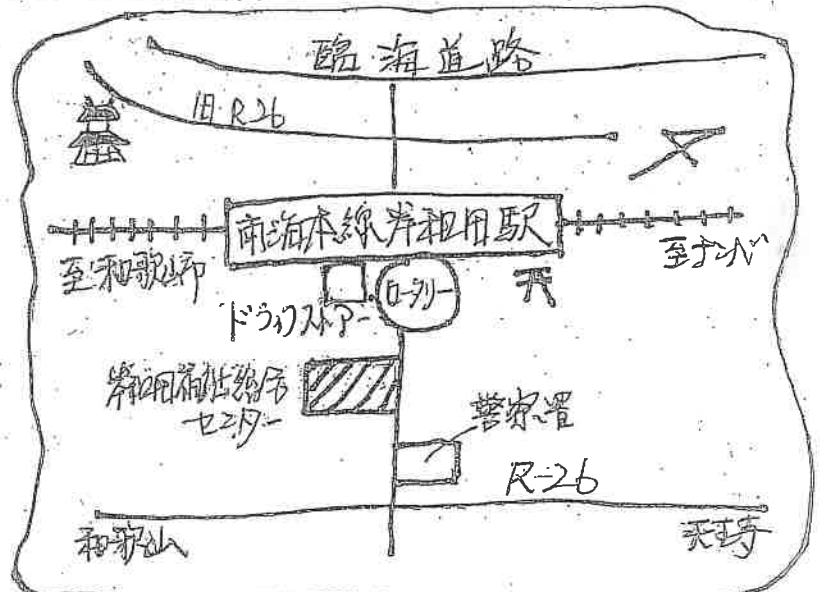 臨海道路
旧R26
南海本線岸和田駅
至和歌山市
至ナンバ
ロータリー
ドラッグストアー
岸和田福祉総合
センター
警察署
R-26
和歌山
天王寺